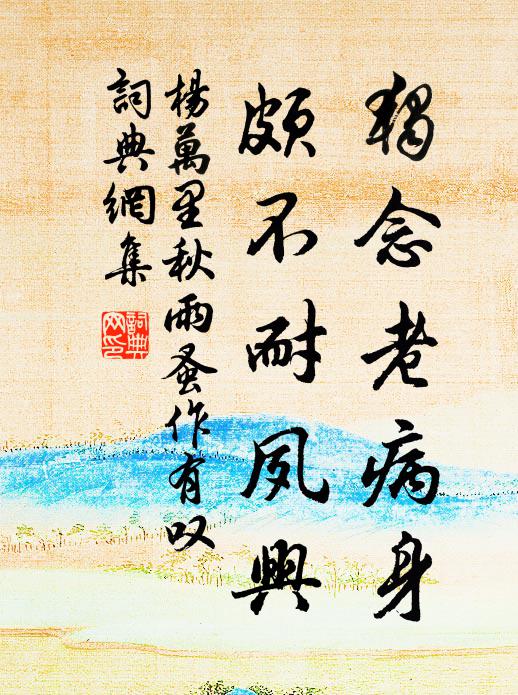 獨念老病身
頗不耐夙興
楊萬里秋雨蚤作有叹
詞典網集
詞典
网印